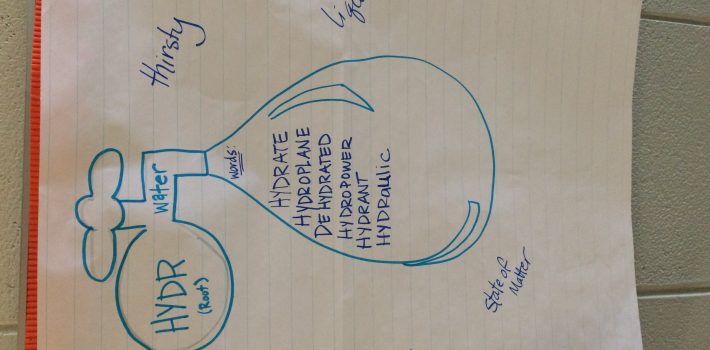 thirsty
HYDR
(Root)
water
words:
HYDRATE
HYDROPLANE
DEHYDRATED
HYDROPOWER
HYDRANT
HYDRAULIC
State of
Matter